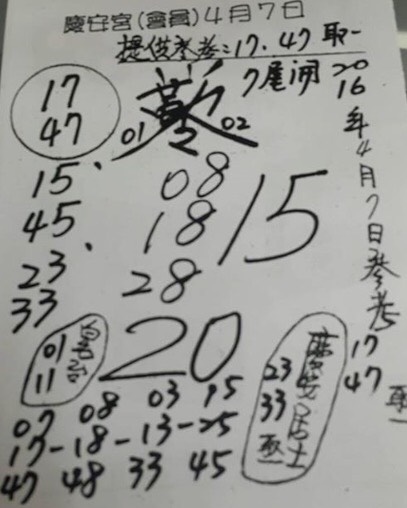 慶安宮(會員)4月7日
提供參考:17.47取一
7尾開
2016年4月7日參考
17
47
01 02
15、
45、
23
33
08
18
28
15
20
01
11
慶安居士
23
33
17
47
07 08 03 15
17-18-13-25
47 48 33 45